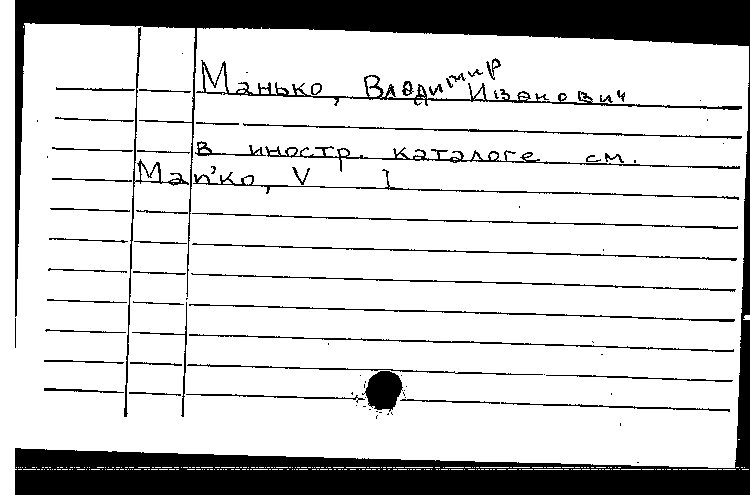 Манько, Владимир Иванович
в иностр. каталоге см.
Man'ko, V I